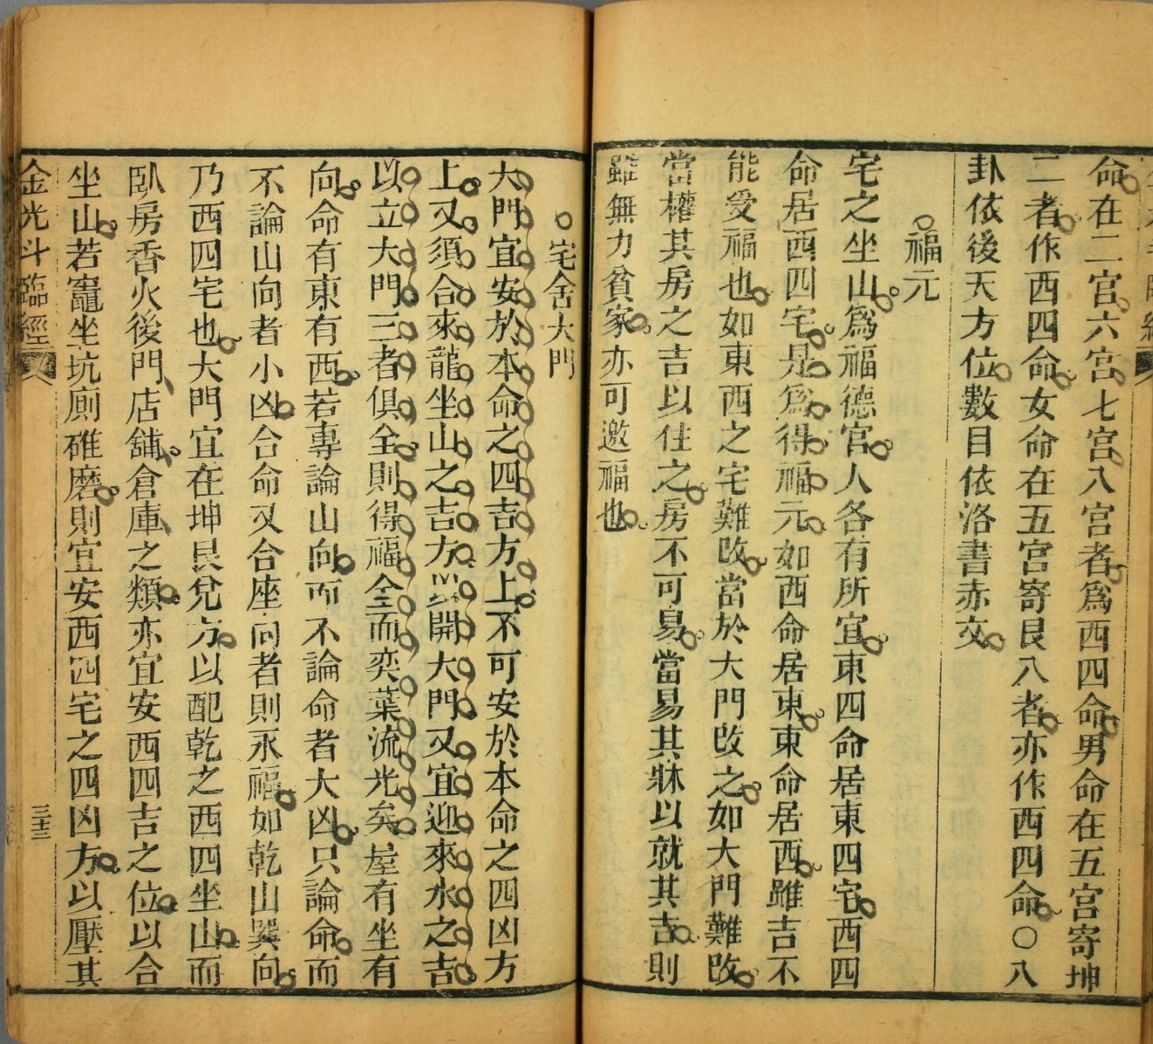 命在二宮六宮七宮八宮者爲西四命男命在五宮寄坤
二者作西四命女命在五宮寄艮八者亦作西四命〇八
卦依後天方位數目依洛書赤文
福元
宅之坐山爲福德宮人各有所宜東四命居東四宅西四
命居西四宅是爲得福元如西命居東東命居西雖吉不
能受福也如東西之宅難改當於大門改之如大門難改
當權其房之吉以住之房不可易當易其牀以就其吉則
雖無力貧家亦可邀福也
宅舍大門
大門宜安於本命之四吉方上不可安於本命之四凶方
上又須合來龍坐山之吉方以開大門又宜迎來水之吉
以立大門三者俱全則得福全而奕葉流光矣屋有坐有
向命有東有西若專論山向而不論命者大凶只論命而
不論山向者小凶合命又合座向者則永福如乾山巽向
乃西四宅也大門宜在坤艮兌方以配乾之西四坐山而
臥房香火後門店舖倉庫之類亦宜安西四吉之位以合
坐山若竈坐坑厠碓磨則宜安西四宅之四凶方以壓其
金光斗臨經
三十三